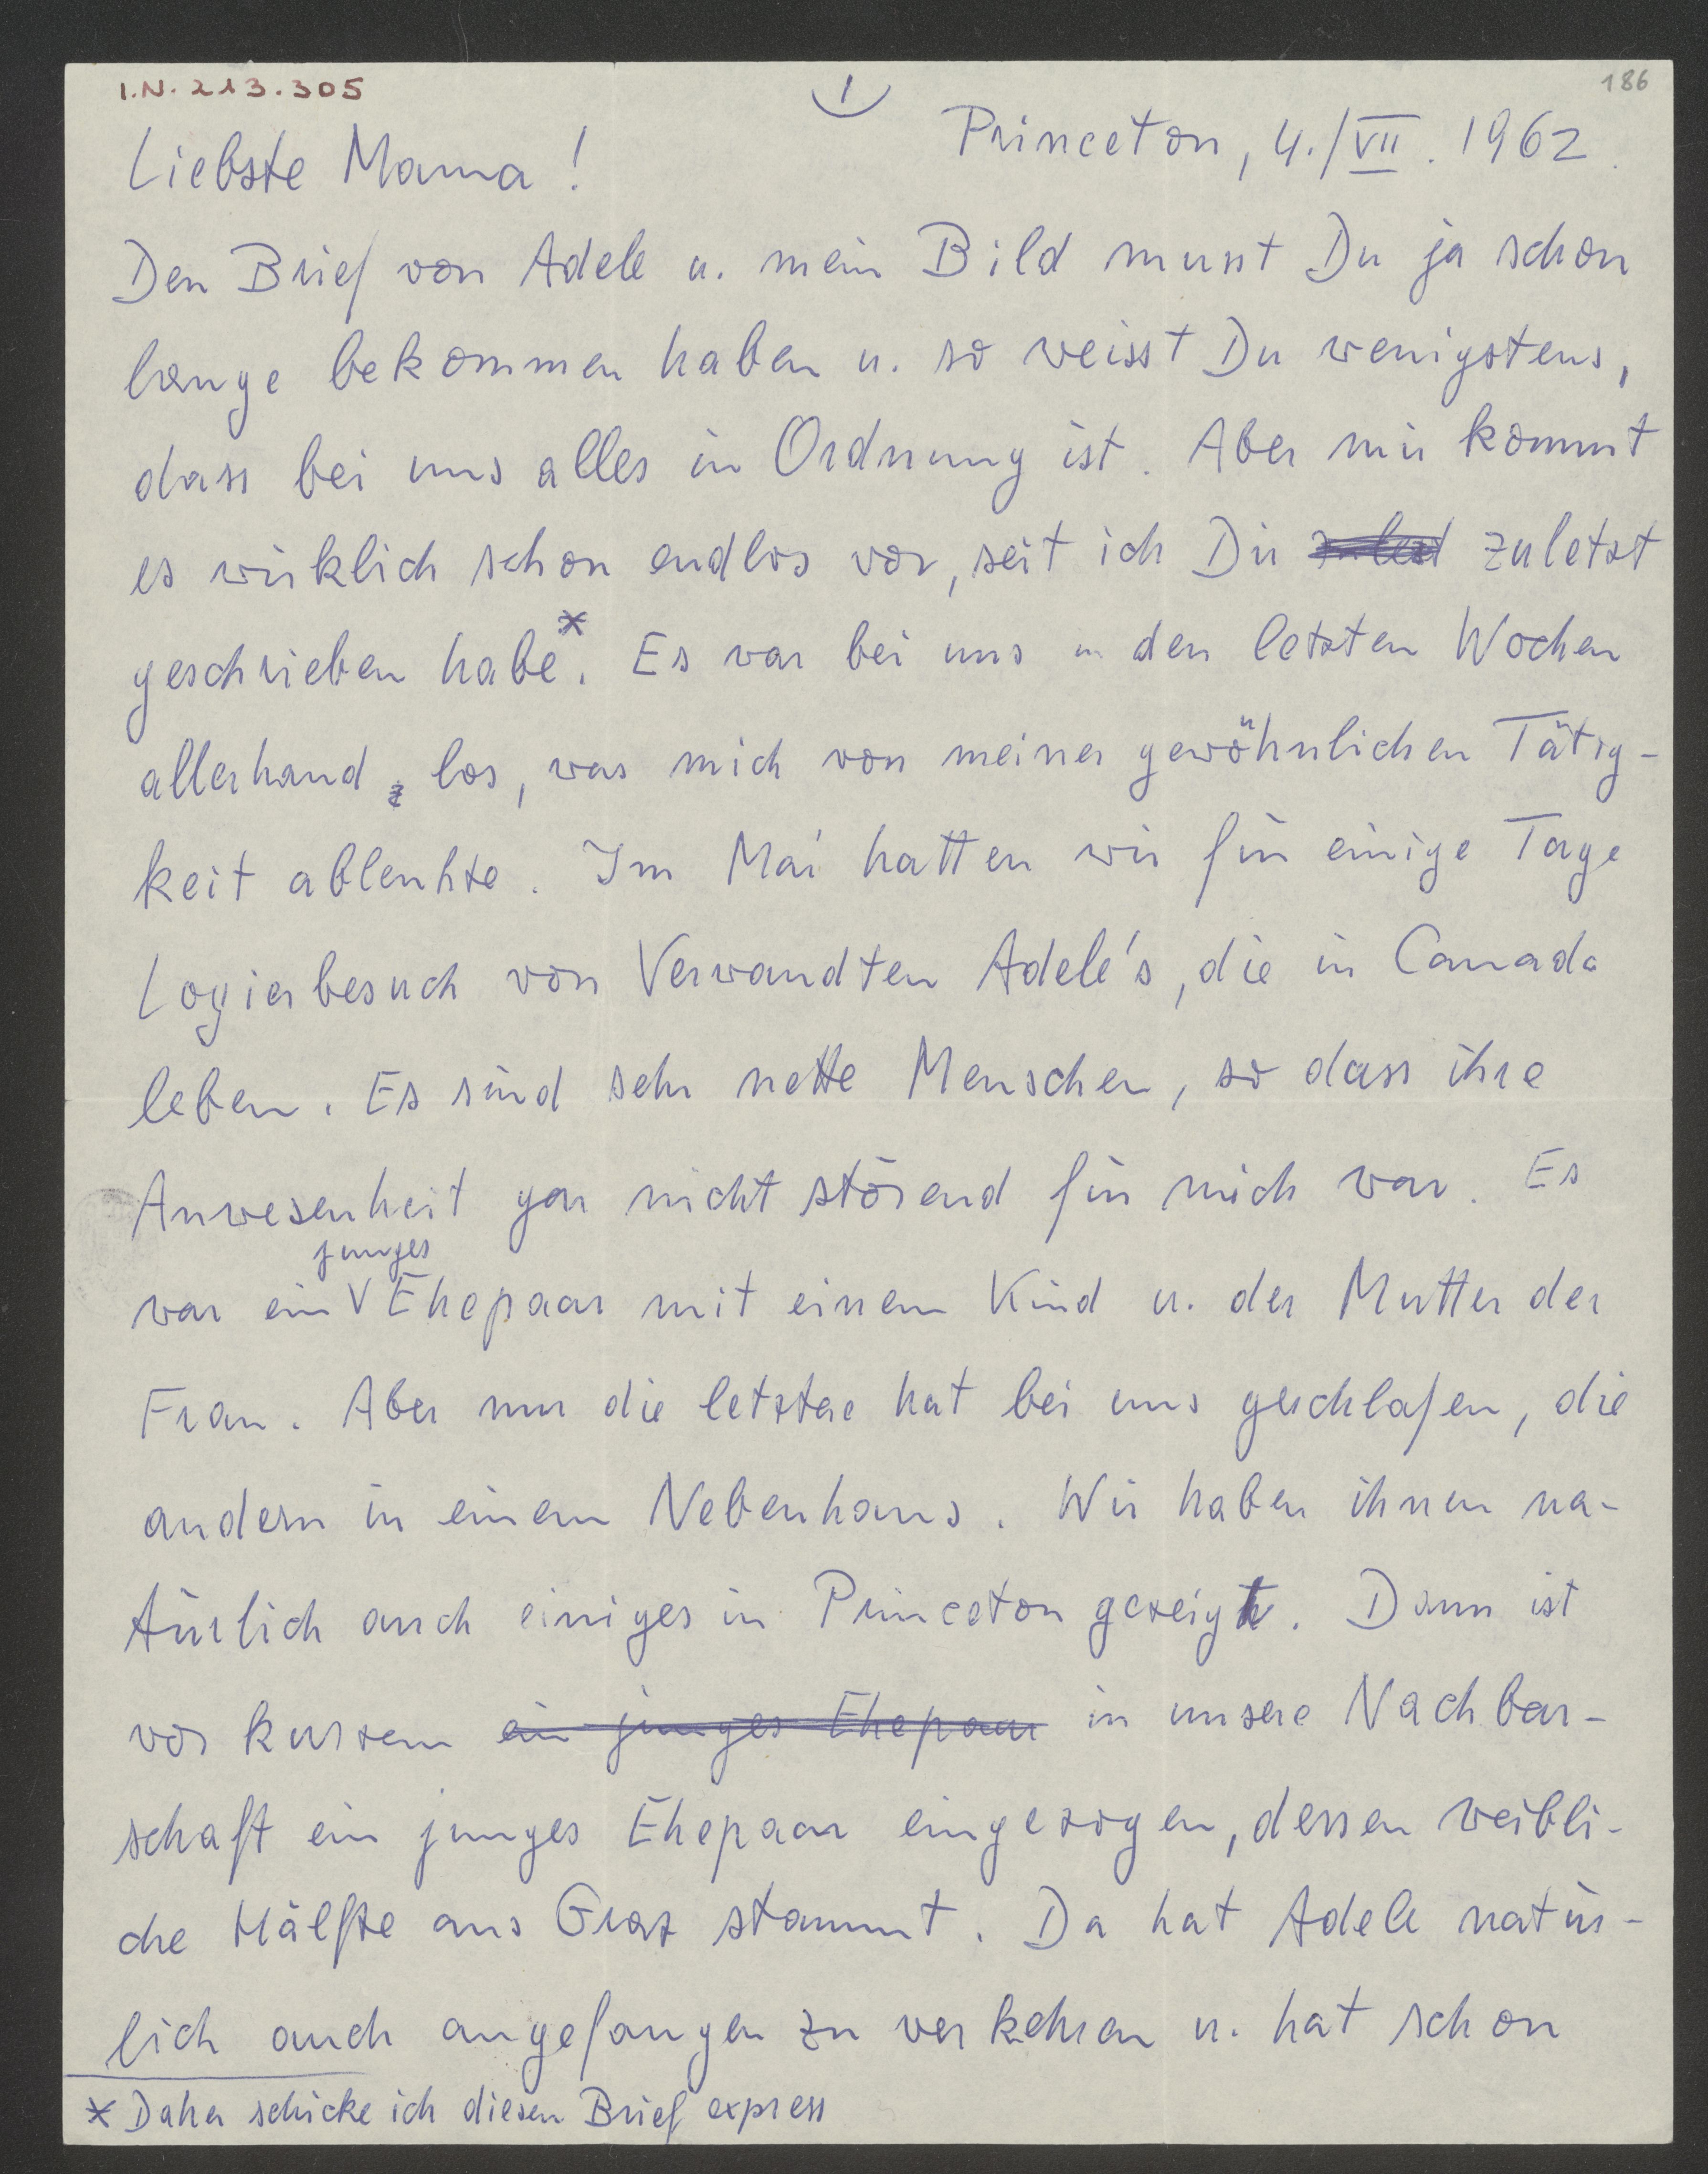 I.N. 213.305
1
186
Princeton, 4./VII. 1962.
Liebste Mama!
Den Brief von Adele u. mein Bild musst Du ja schon
lange bekommen haben u. so weisst Du wenigstens,
dass bei uns alles in Ordnung ist. Aber mir kommt
es wirklich schon endlos vor, seit ich Dir zuletzt
geschrieben habe*. Es war bei uns in den letzten Wochen
allerhand los, was mich von meiner gewöhnlichen Tätig-
keit ablenkte. Im Mai hatten wir für einige Tage
Logierbesuch von Verwandten Adele's, die in Canada
leben. Es sind sehr nette Menschen, so dass ihre
Anwesenheit gar nicht störend für mich war. Es
junges
war ein V Ehepaar mit einem Kind u. der Mutter der
Frau. Aber nur die letztere hat bei uns geschlafen, die
andern in einem Nebenhaus. Wir haben ihnen na-
türlich auch einiges in Princeton gezeigt. Dann ist
vor kurzem ein junges Ehepaar in unsere Nachbar-
schaft ein junges Ehepaar eingezogen, dessen weibli-
che Hälfte aus Graz stammt. Da hat Adele natür-
lich auch angefangen zu verkehren u. hat schon
* Daher schicke ich diesen Brief express